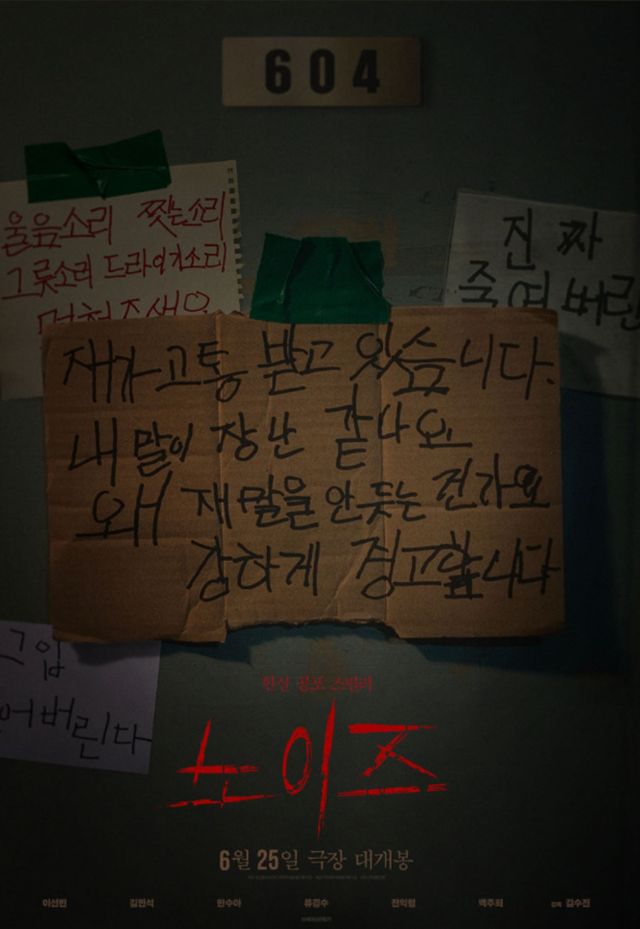 604
울음소리 찢는소리
그릇소리 드라이기소리
진짜
죽여버린
재가 고통 받고 있습니다.
내 말이 장난 같나요
왜 재 말을 안 듣는 건가요
강하게 경고합니다
그입
어버린다
현실 공포 스릴러
노이즈
6월 25일 극장 대개봉
이선빈 김민석 한수아 류경수 전익령 백주희 감독 김수진